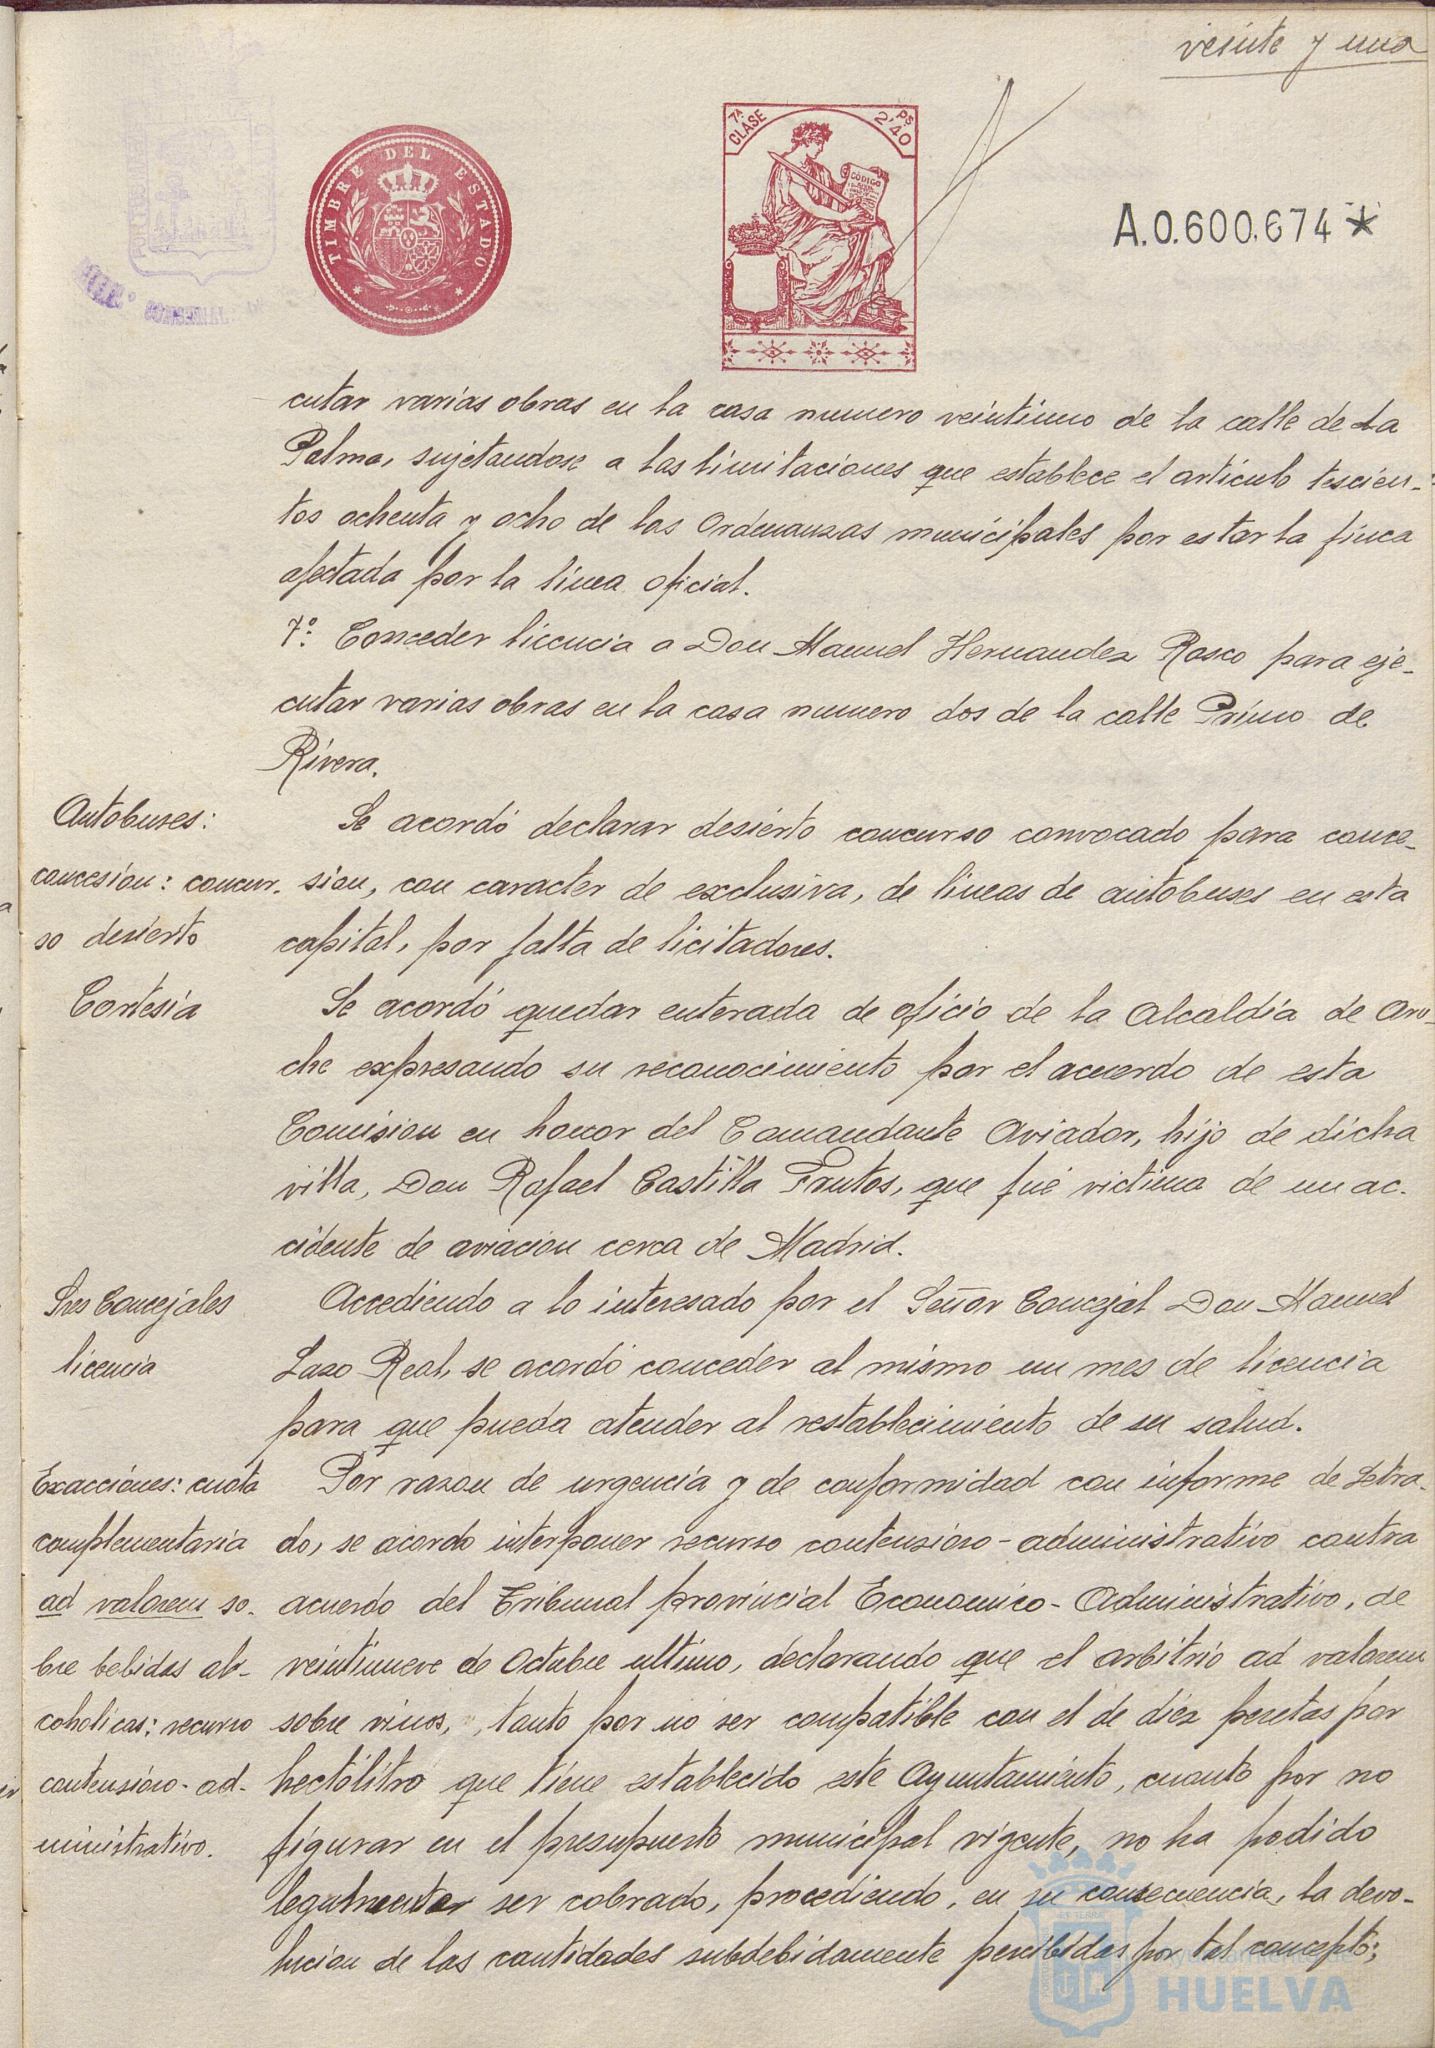 veinte y una
TIMBRE DEL ESTADO
7ª CLASE
2'40 Ps
CÓDIGO
A.0.600.674*
cutar varias obras en la casa numero veintiuno de la calle de La
Palma, sujetandose a las limitaciones que establece el articulo tescien-
tos ochenta y ocho de las Ordenanzas municipales por estar la finca
afectada por la linea oficial.
7º: Conceder licencia a Don Manuel Hernandez Rosco para eje-
cutar varias obras en la casa numero dos de la calle Primo de
Rivera.
Autobuses:
concesion: concur-
so desierto
Se acordó declarar desierto concurso convocado para conce-
sion, con caracter de exclusiva, de lineas de autobuses en esta
capital, por falta de licitadores.
Cortesia
Se acordó quedar enterada de oficio de la Alcaldía de Aro-
che expresando su reconocimiento por el acuerdo de esta
Comision en honor del Comandante Aviador, hijo de dicha
villa, Don Rafael Castilla Frutos, que fué victima de un ac-
cidente de aviacion cerca de Madrid.
Sres Concejales
licencia
Accediendo a lo interesado por el Señor Concejal Don Manuel
Lazo Real, se acordó conceder al mismo un mes de licencia
para que pueda atender al restablecimiento de su salud.
Exacciónes: cuota
complementaria
ad valorem so-
bre bebidas al-
coholicas: recurso
contensioso-ad-
ministrativo.
Por razon de urgencia y de conformidad con informe de Letra-
do, se acordo interponer recurso contensioso-administrativo contra
acuerdo del Tribunal provincial Economico-Administrativo, de
veintinueve de Octubre ultimo, declarando que el arbitrio ad valorem
sobre vinos, tanto por no ser compatible con el de diez pesetas por
hectólitro que tiene establecido este Ayuntamiento, cuanto por no
figurar en el presupuesto municipal vigente, no ha podido
legalmente ser cobrado, procediendo, en su consecuencia, la devo-
lucion de las cantidades subdebidamente percibidas por tal concepto;
Ayuntamiento de
HUELVA